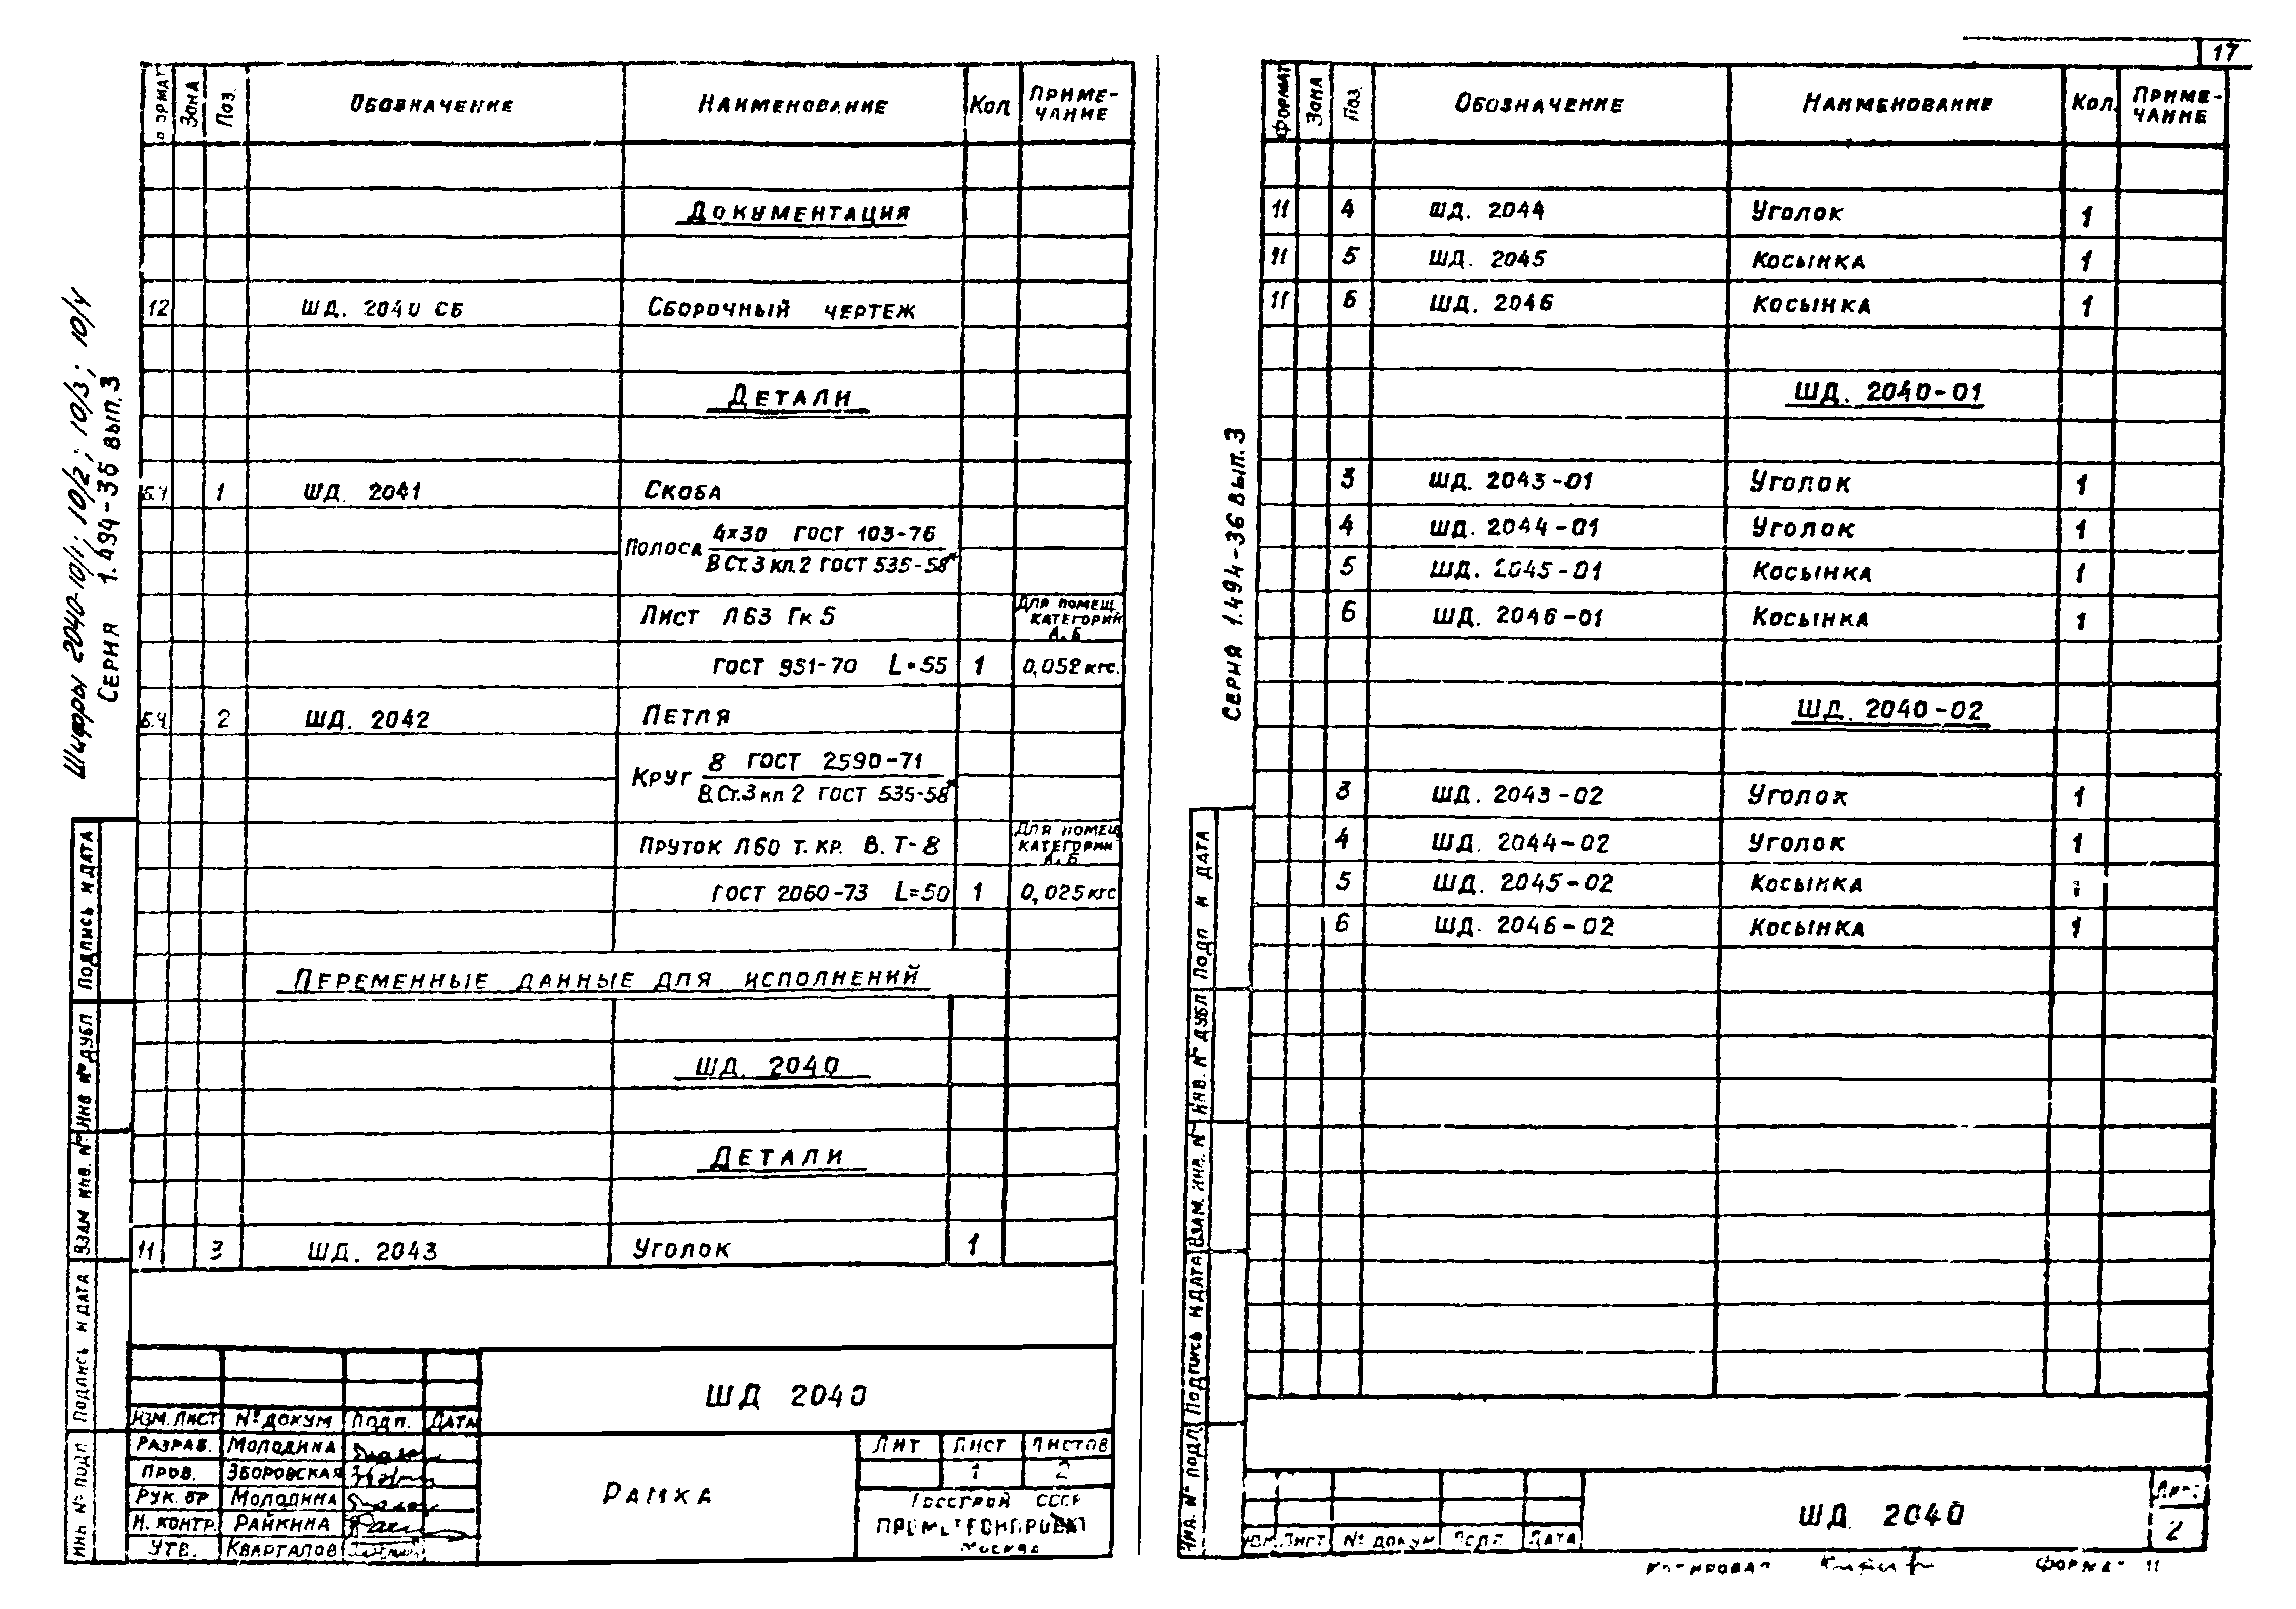 17
ФОРМАТ ЗОНА ПОЗ. ОБОЗНАЧЕНИЕ НАИМЕНОВАНИЕ КОЛ ПРИМЕ-
ЧАНИЕ
ДОКУМЕНТАЦИЯ
12 ШД. 2040 СБ СБОРОЧНЫЙ ЧЕРТЕЖ
ДЕТАЛИ
Б.Ч 1 ШД. 2041 СКОБА
ПОЛОСА 4×30 ГОСТ 103-76
В СТ.3 КП.2 ГОСТ 535-58*
ЛИСТ Л63 ГК 5 ДЛЯ ПОМЕЩ.
КАТЕГОРИЙ
А, Б
ГОСТ 931-70 L=55 1 0,052 кгс.
Б.Ч 2 ШД. 2042 ПЕТЛЯ
КРУГ 8 ГОСТ 2590-71
В.СТ.3 КП 2 ГОСТ 535-58*
ПРУТОК Л60 Т. КР. В. Т-8 ДЛЯ ПОМЕЩ
КАТЕГОРИИ
А, Б
ГОСТ 2060-73 L=50 1 0,025 кгс
ПЕРЕМЕННЫЕ ДАННЫЕ ДЛЯ ИСПОЛНЕНИЙ
ШД. 2040
ДЕТАЛИ
11 3 ШД. 2043 УГОЛОК 1
Шифры 2040-10/1; 10/2; 10/3; 10/4
СЕРИЯ 1.494-36 ВЫП.3
ПОДПИСЬ И ДАТА
ИНВ № ДУБЛ
ВЗАМ ИНВ. №
ПОДПИСЬ И ДАТА
ИНВ № ПОДЛ
ШД 2040
ИЗМ. ЛИСТ № ДОКУМ ПОДП. ДАТА
РАЗРАБ. МОЛОДИНА
ПРОВ. ЗБОРОВСКАЯ
РУК. БР МОЛОДИНА
Н. КОНТР. РАЙКИНА
УТВ. КВАРТАЛОВ
РАМКА
ЛИТ ЛИСТ ЛИСТОВ
1 2
ГОССТРОЙ СССР
МОСКВА
ФОРМАТ ЗОНА ПОЗ. ОБОЗНАЧЕНИЕ НАИМЕНОВАНИЕ КОЛ. ПРИМЕ-
ЧАНИЕ
11 4 ШД. 2044 УГОЛОК 1
11 5 ШД. 2045 КОСЫНКА 1
11 6 ШД. 2046 КОСЫНКА 1
ШД. 2040-01
3 ШД. 2043-01 УГОЛОК 1
4 ШД. 2044-01 УГОЛОК 1
5 ШД. 2045-01 КОСЫНКА 1
6 ШД. 2046-01 КОСЫНКА 1
ШД. 2040-02
3 ШД. 2043-02 УГОЛОК 1
4 ШД. 2044-02 УГОЛОК 1
5 ШД. 2045-02 КОСЫНКА 1
6 ШД. 2046-02 КОСЫНКА 1
СЕРИЯ 1.494-36 ВЫП.3
ПОДП И ДАТА
ИНВ. № ДУБЛ
ВЗАМ. ИНВ. №
ПОДПИСЬ И ДАТА
ИНВ. № ПОДЛ
ИЗМ. ЛИСТ № ДОКУМ ПОДП. ДАТА
ШД. 2040
ЛИСТ
2
КОПИРОВАЛ ФОРМАТ 11